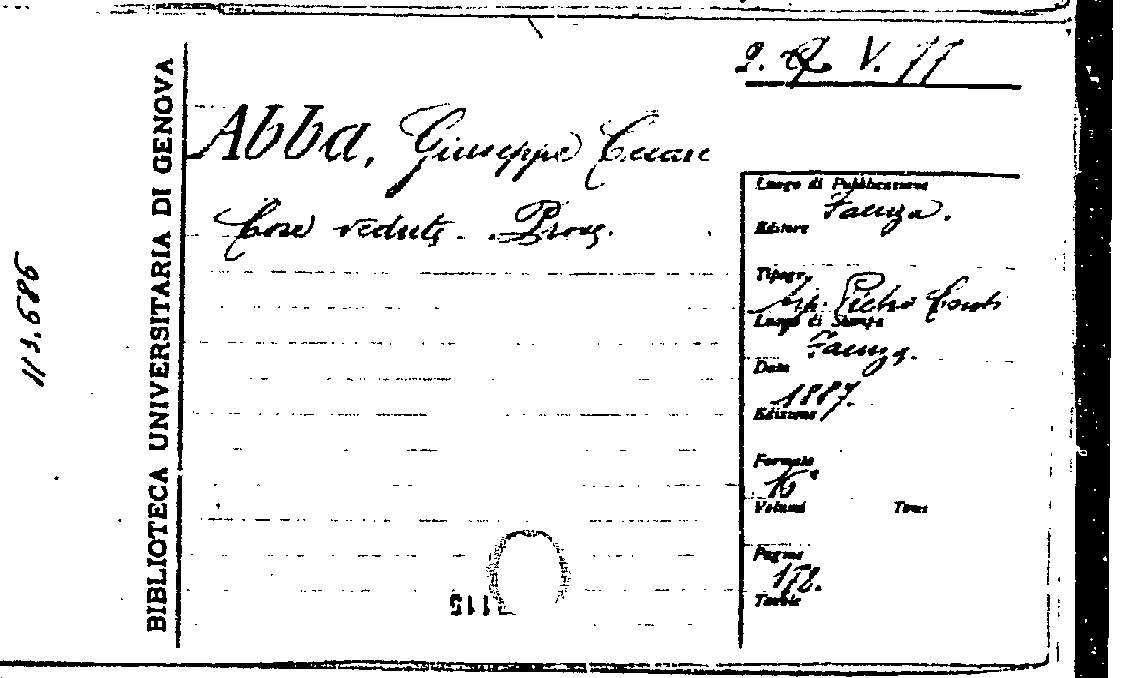 2. Q V. 77
BIBLIOTECA UNIVERSITARIA DI GENOVA
113.686
Abba, Giuseppe Cesare
Cose vedute. Prose.
Luogo di Pubblicazione
Faenza.
Editore
Tipogr.
tip. Pietro Conti
Luogo di Stampa
Faenza.
Data
1887.
Edizione
Formato
16°
Volumi Tomi
Pagine
Tavole
115